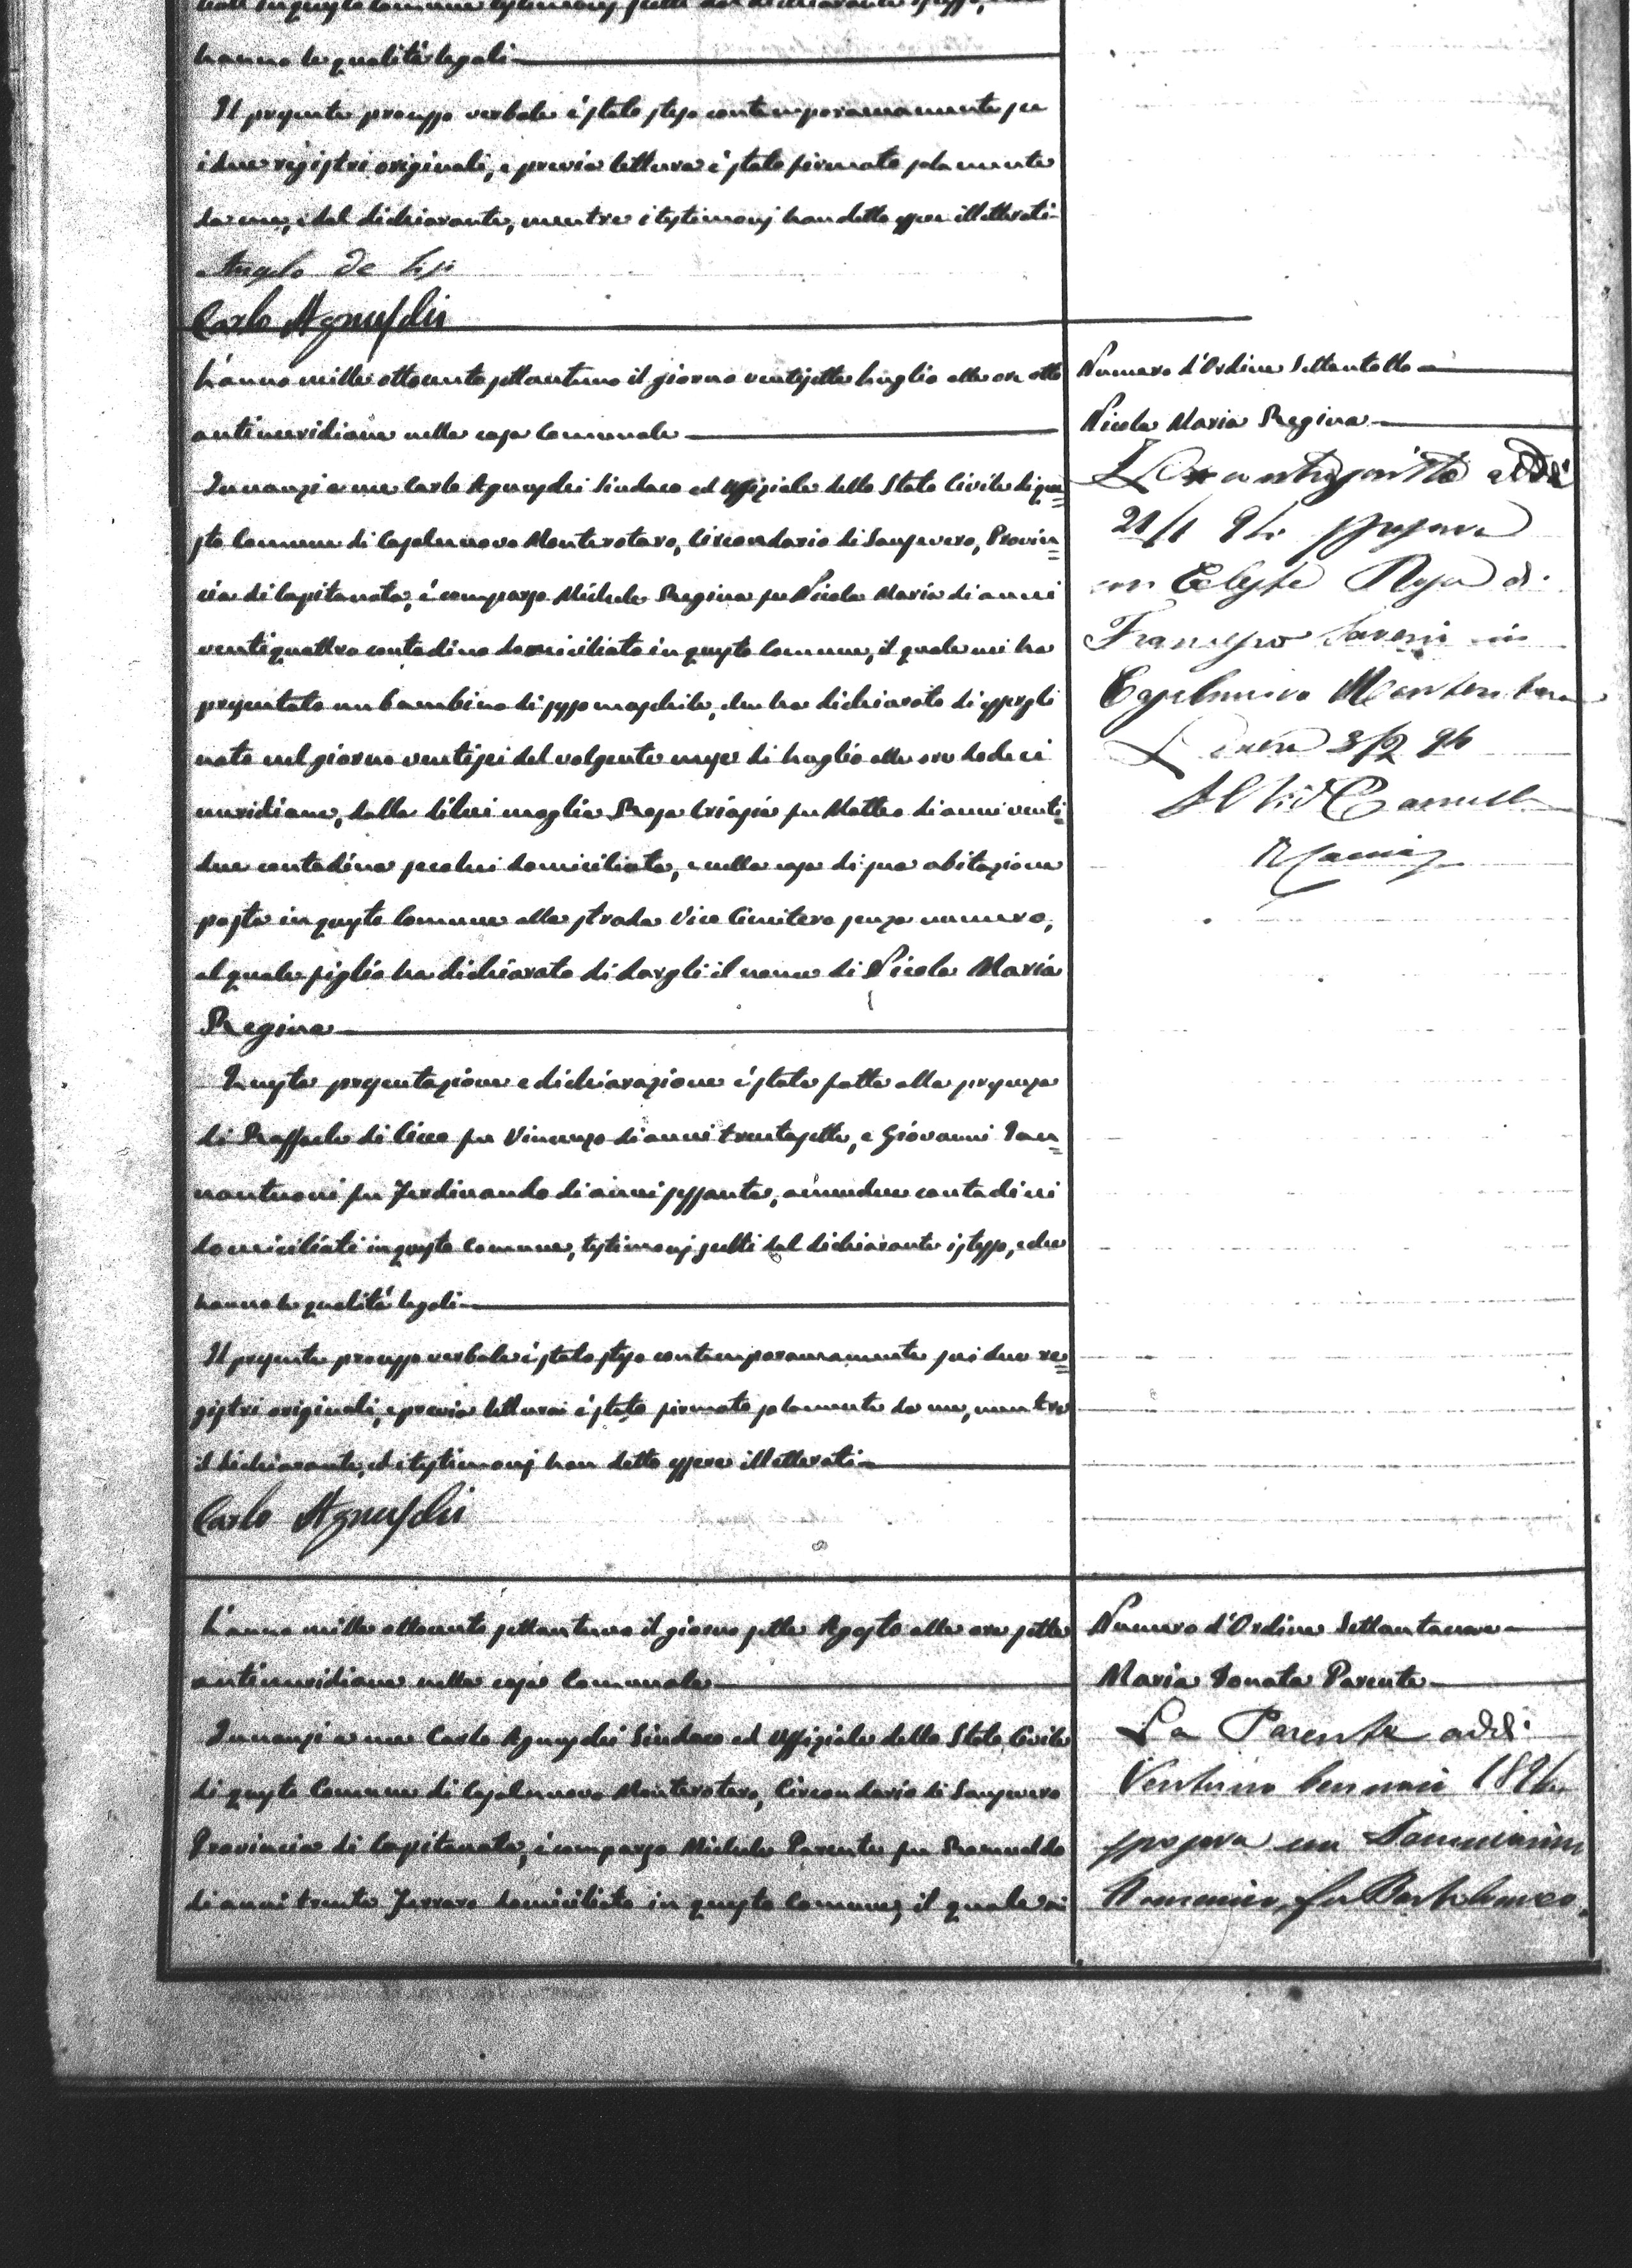 hanno le qualità legali
Il presente processo verbale è stato steso contemporaneamente su
i due registri originali, e previa lettura è stato firmato solamente
da me, e dal dichiarante, mentre i testimonj han detto essere illetterati
Angelo de Lisi
Carlo Agnusdei
L'anno mille ottocento settantuno il giorno ventisette Luglio alle ore otto
antimeridiane nella casa Comunale
Innanzi a me Carlo Agnusdei Sindaco ed Uffiziale dello Stato Civile di que=
sto Comune di Casalnuovo Monterotaro, Circondario di Sansevero, Provin=
cia di Capitanata, è comparso Michele Regina fu Nicola Maria di anni
ventiquattro contadino domiciliato in questo Comune, il quale mi ha
presentato un bambino di sesso maschile, che ha dichiarato di essergli
nato nel giorno ventisei del volgente mese di Luglio alle ore dodeci
meridiane, dalla di lui moglie Rosa Criasia fu Matteo di anni venti=
due contadina seco lui domiciliata, e nella casa di sua abitazione
posta in questo Comune alla strada Vico Cimitero senza numero,
al quale figlio ha dichiarato di dargli il nome di Nicola Maria
Regina
Questa presentazione e dichiarazione è stata fatta alla presenza
di Raffaele di Cicco fu Vincenzo di anni trentasette, e Giovanni Ian=
nantuoni fu Ferdinando di anni sessanta, amendue contadini
domiciliati in questo Comune, testimonj scelti dal dichiarante istesso, e che
hanno le qualità legali
Il presente processo verbale è stato steso contemporaneamente sui due re=
gistri originali, e previa lettura è stato firmato solamente da me, mentre
il dichiarante, ed i testimonj han detto essere illetterati
Carlo Agnusdei
L'anno mille ottocento settantuno il giorno sette Agosto alle ore sette
antimeridiane nella casa Comunale
Innanzi a me Carlo Agnusdei Sindaco ed Uffiziale dello Stato Civile
di questo Comune di Casalnuovo Monterotaro, Circondario di Sansevero
Provincia di Capitanata, è comparso Michele Parente fu Romualdo
di anni trenta Ferraro domiciliato in questo Comune, il quale mi
Numero d'Ordine Settantotto
Nicola Maria Regina
controscritto addì
21/1 94 sposava
con Celeste Rosa di
Francesco Saverio in
Casalnuovo Monterotaro
Lucera 3/2 94
Numero d'Ordine Settantanove
Maria Donata Parente
La Parente addì
Ventuno Gennaio 189
sposava con
Domenico fu Bartolomeo.